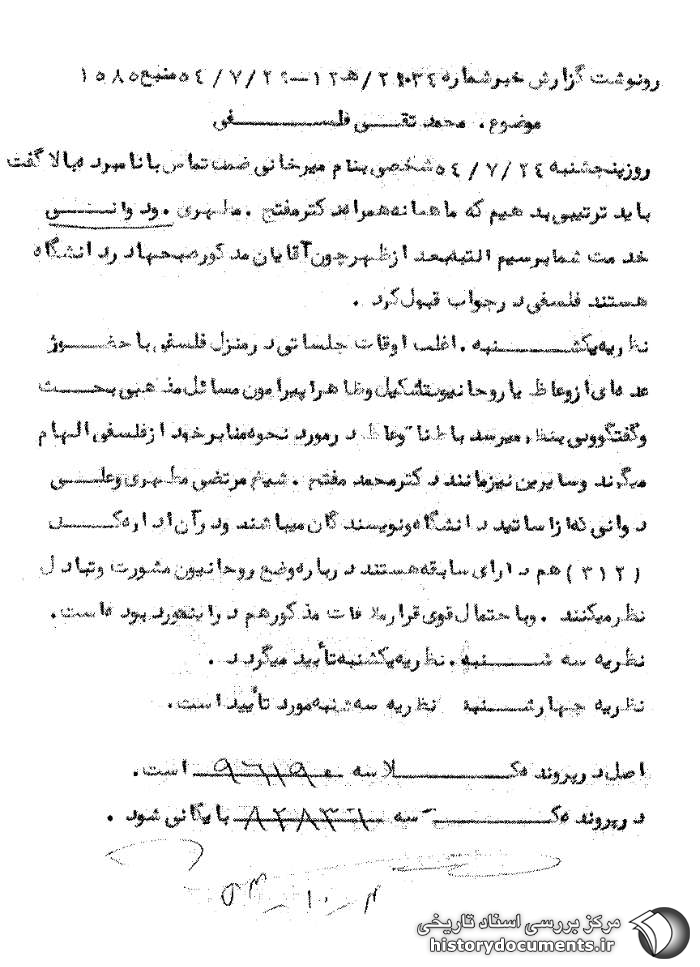 رونوشت گزارش خبر شماره ۲۱۰۳٤/ هـ ۱۲ — ۵٤/۷/۲۹ منبع ۱۵۸۵
موضوع . محمد تقـــی فلســـــــفی
روز پنجشنبه ۵٤/۷/۲٤ شخصی بنام میرخانی ضمن تماس با نامبرده بالا گفت
باید ترتیبی بدهیم که ما همانه همراه دکتر مفتح . مطهری . ودوانــــی
خدمت شما برسیم البته بعد از ظهر چون آقایان مذکور صبحها در دانشگاه
هستند فلسفی در جواب قبول کرد .
نظریه یکشـــــنبه . اغلب اوقات جلساتی در منزل فلسفی با حضـــور
عده ای از وعاظ یا روحانیون تشکیل و ظاهرا پیرامون مسائل مذهبی بحــــث
و گفتگو وبی بنظر میرسد باطنا وعاظ در مورد نحوه منابر خود از فلسفی الهام
میگرند و سایرین نیز مانند دکتر محمد مفتح . شیخ مرتضی مطهری و علـــی
دوانی که از اساتید دانشگاه و نویسندگان میباشند و در آن اداره کـــل
(۳۱۲) هم دارای سابقه هستند درباره وضع روحانیون مشورت و تبادل
نظر میکنند . و با احتمال قوی قرار ملاقات مذکور هم در اینمورد بوده است .
نظریه سه شــــنبه . نظریه یکشنبه تأیید میگردد .
نظریه چهارشـــنبه نظریه سه شنبه مورد تأیید است .
اصل در پرونده کـــــــلاسه ۹۶۱۹۰ است .
در پرونده کـــــــــــسه ۸۲۸۳۶ بایگانی شود .
۵۴ – ۱۰ – ۴
مرکز بررسی اسناد تاریخی
historydocuments.ir